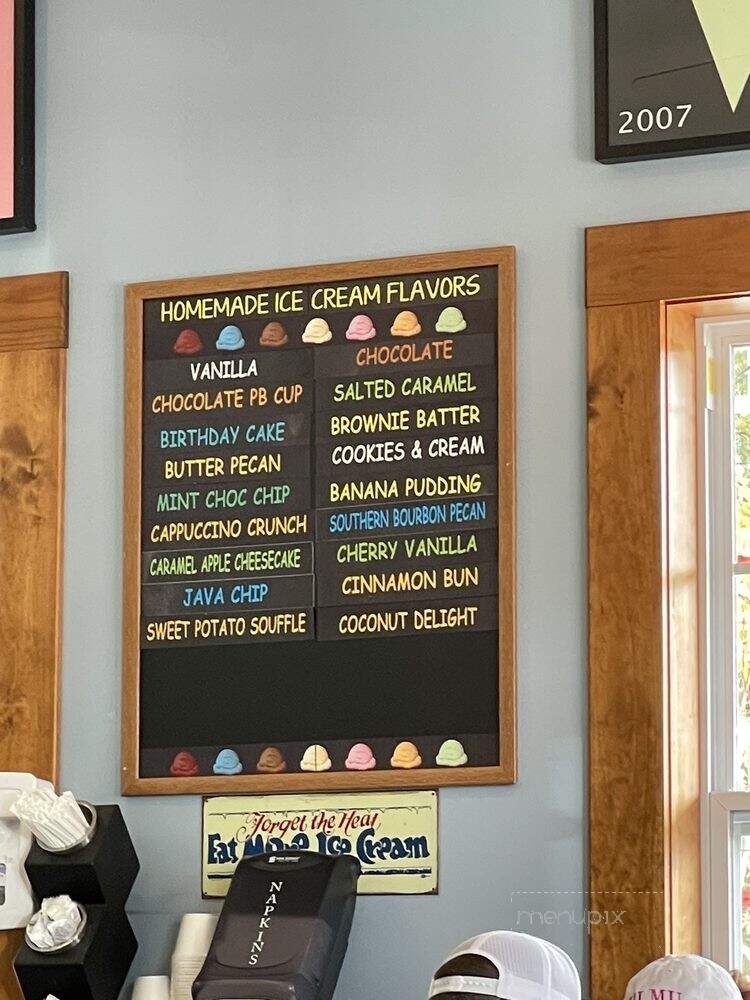 2007
HOMEMADE ICE CREAM FLAVORS
VANILLA
CHOCOLATE PB CUP
BIRTHDAY CAKE
BUTTER PECAN
MINT CHOC CHIP
CAPPUCCINO CRUNCH
CARAMEL APPLE CHEESECAKE
JAVA CHIP
SWEET POTATO SOUFFLE
CHOCOLATE
SALTED CARAMEL
BROWNIE BATTER
COOKIES & CREAM
BANANA PUDDING
SOUTHERN BOURBON PECAN
CHERRY VANILLA
CINNAMON BUN
COCONUT DELIGHT
Forget the Heat,
Eat More Ice Cream
NAPKINS
menupix